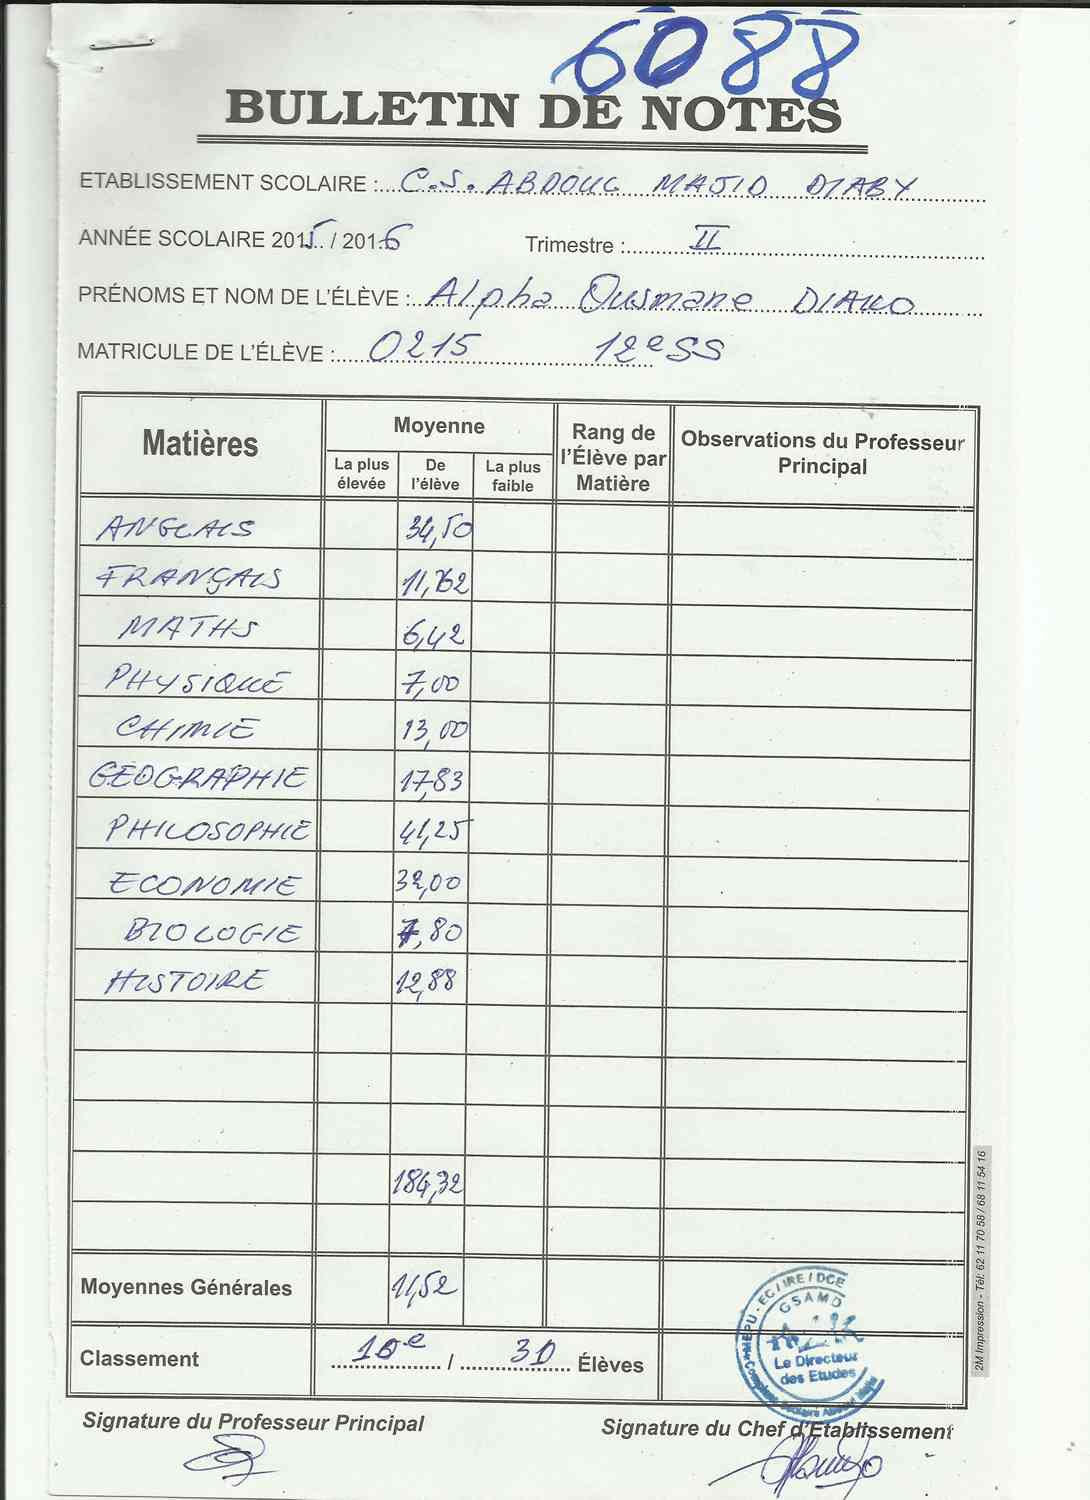 6088
BULLETIN DE NOTES
ETABLISSEMENT SCOLAIRE : C.S. ABDOUL MAJID DIABY
ANNÉE SCOLAIRE 2015 / 2016 Trimestre : II
PRÉNOMS ET NOM DE L'ÉLÈVE : Alpha Ousmane DIAKO
MATRICULE DE L'ÉLÈVE : 0215 12e SS
Matières Moyenne Rang de l'Élève par Matière Observations du Professeur Principal
La plus élevée De l'élève La plus faible
ANGLAIS 34,50
FRANÇAIS 11,62
MATHS 6,42
PHYSIQUE 7,00
CHIMIE 13,00
GÉOGRAPHIE 17,83
PHILOSOPHIE 41,25
ECONOMIE 32,00
BIOLOGIE 7,80
HISTOIRE 12,88
184,32
Moyennes Générales 11,52
Classement 10e / 30 Élèves
MEPU - EC / IRE / DCE
GSAMD
Le Directeur
des Etudes
Signature du Professeur Principal Signature du Chef d'Etablissement
2M Impression - Tél: 62 11 70 58 / 68 11 54 16